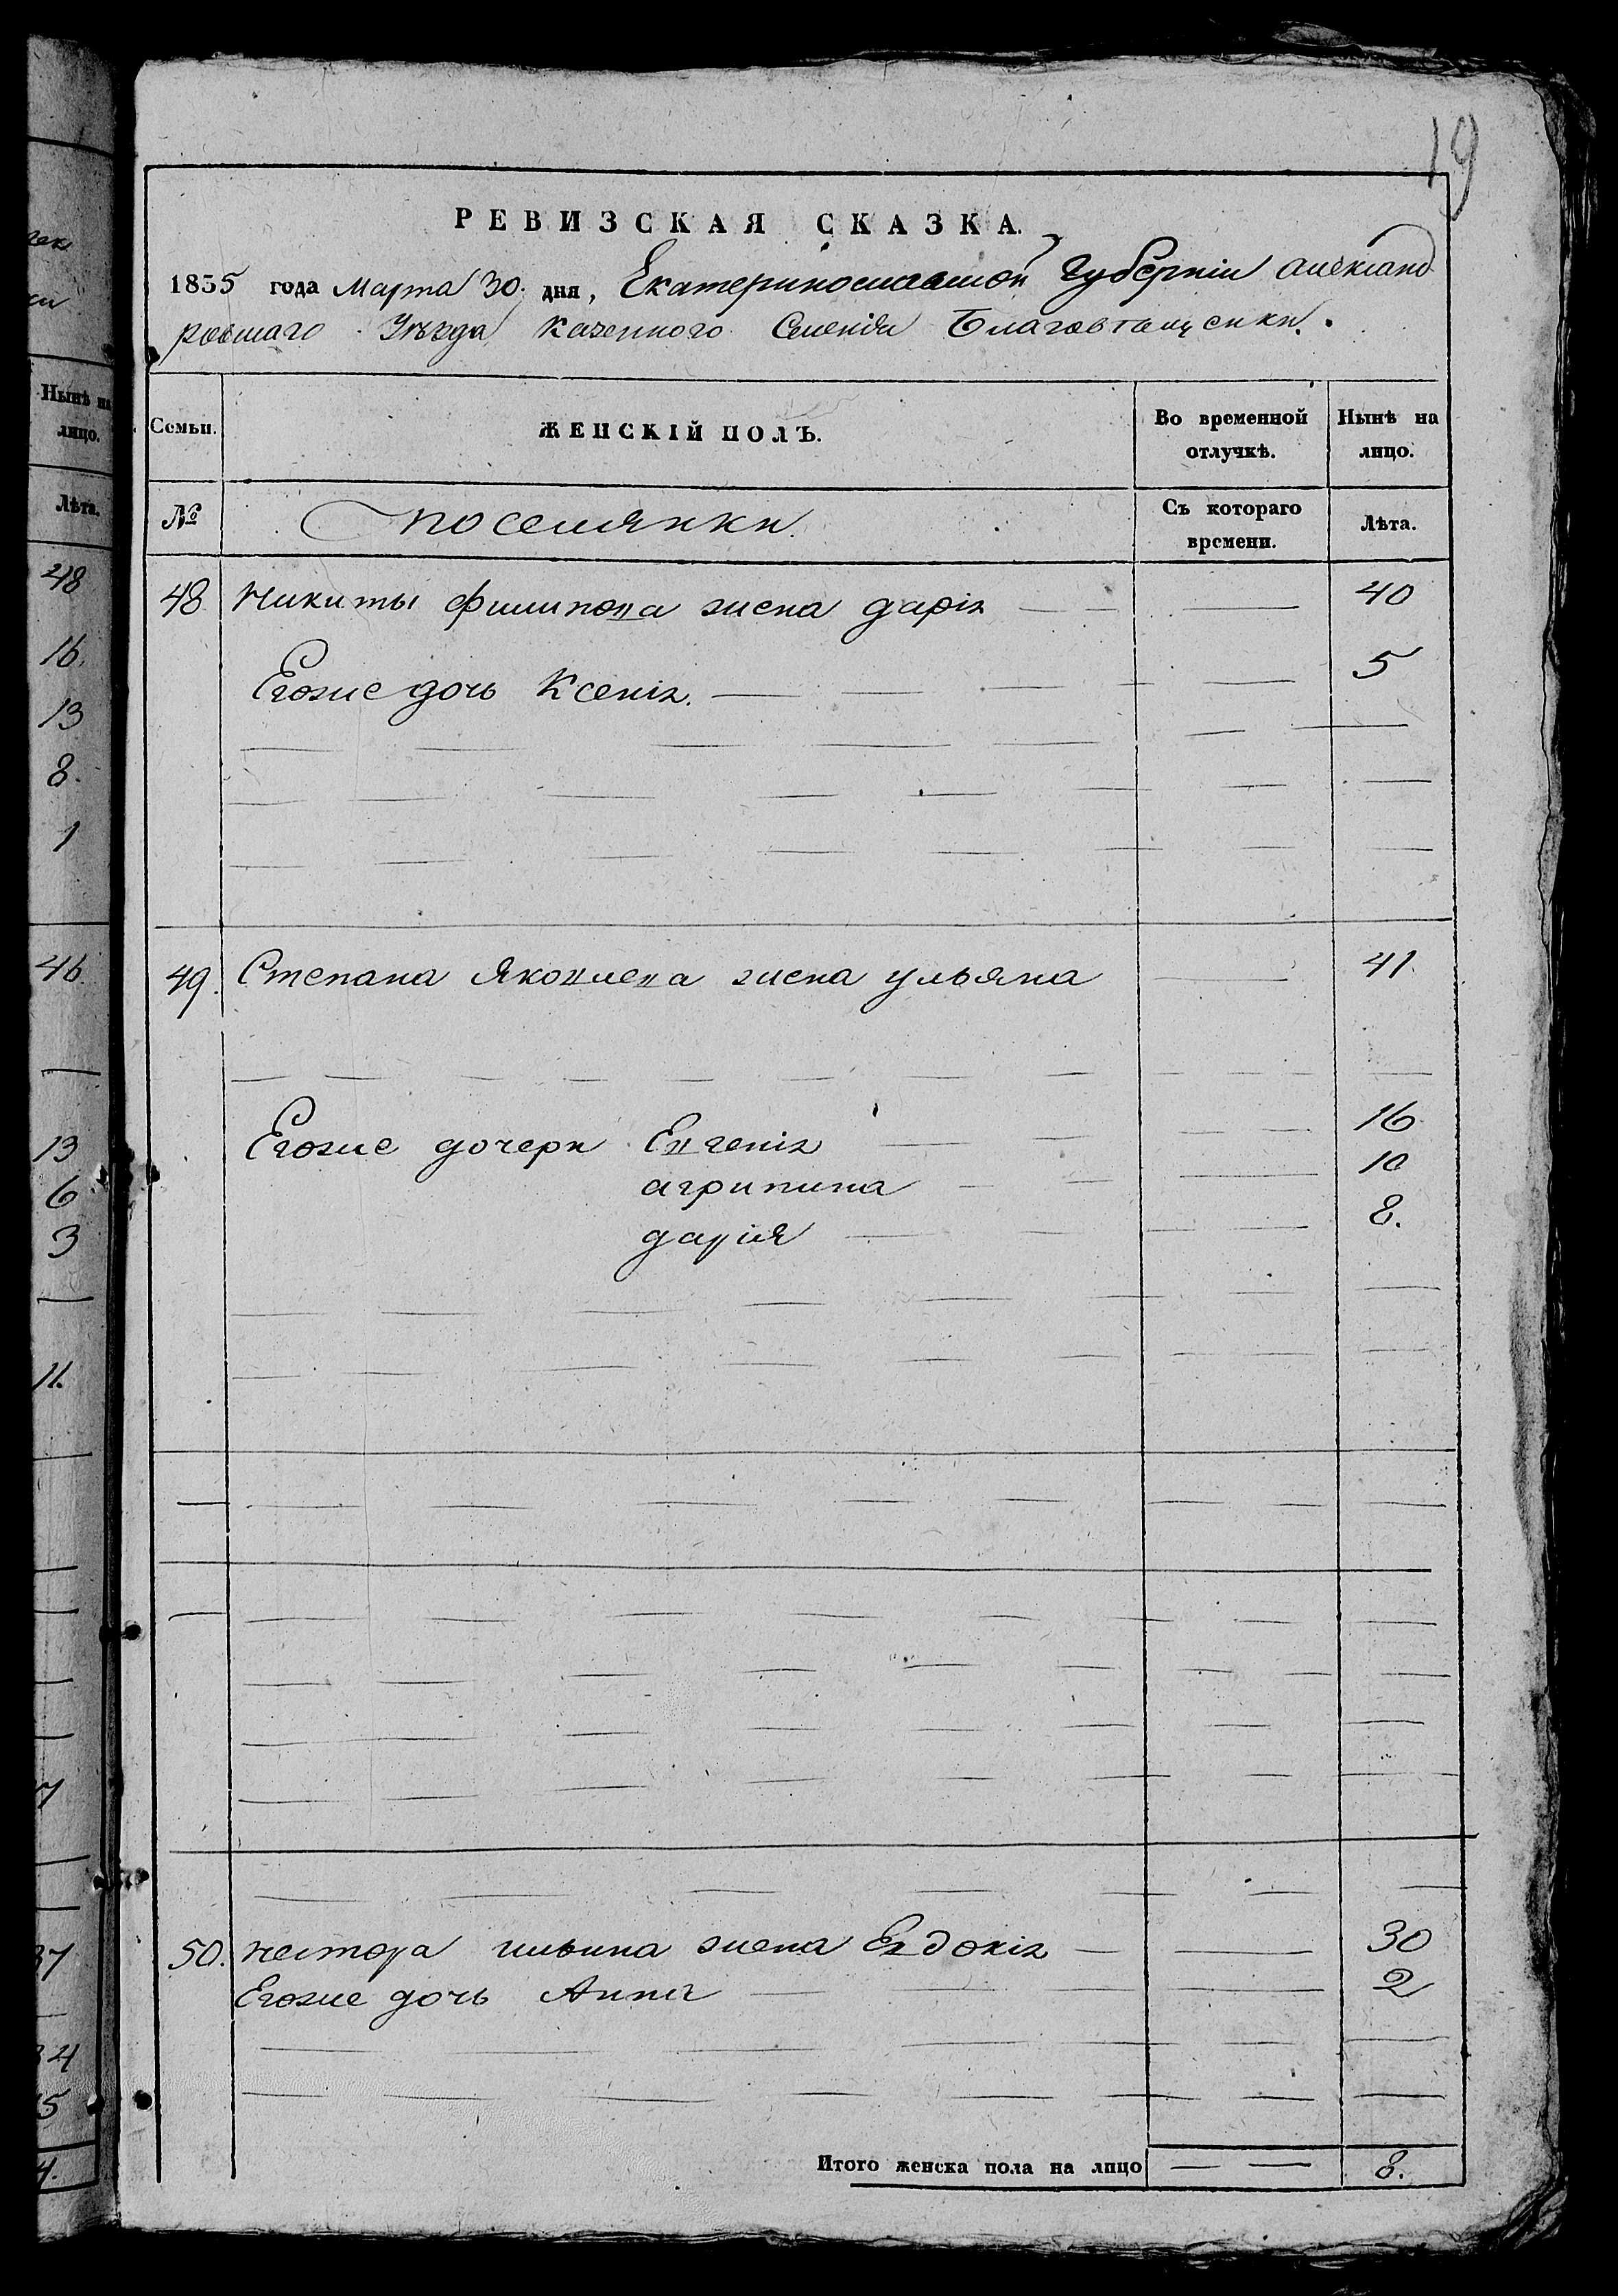 19
РЕВИЗСКАЯ СКАЗКА.
1835 года Марта 30. дня, Екатеринославской Губерніи Александ
ровскаго Уѣзда Казенного Селенія Благовѣщенки.
Семьи. ЖЕНСКІЙ ПОЛЪ. Во временной отлучкѣ. Нынѣ на лицо.
№ поселянки. Съ котораго времени. Лѣта.
48 Никиты Филипова жена даріа 40
Егоже дочь Ксеніа. 5
49. Степана Яковлева жена ульяна 41.
Егоже дочери Евгеніа 16
агрипина 10
дарія 8.
50. Нестора ильина жена Евдокіа 30
Егоже дочь Анна 2
Итого женска пола на лицо 8.
Нынѣ на
лицо.
Лѣта.
48
16.
13
8.
1
46.
13
6
3
11.